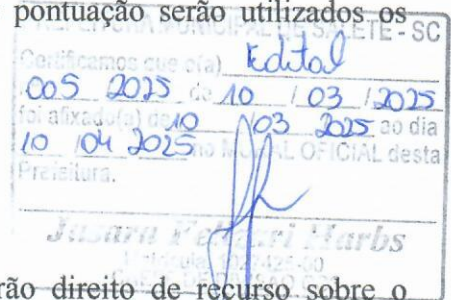 pontuação serão utilizados os
PREFEITURA MUNICIPAL DE SALETE - SC
Certificamos que o(a) Edital
005 2025 de 10 / 03 / 2025
foi afixado(a) de 10 03 2025 ao dia
10 04 2025 no MURAL OFICIAL desta
Prefeitura.
Harbs
rão direito de recurso sobre o